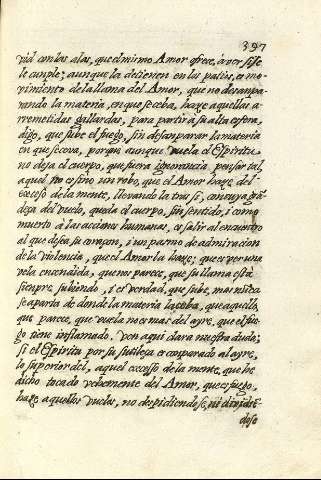 397
vid con las alas, que el mismo Amor ofrece, à ver si se
le cumple; aunque la detienen en las patios, es mo-
vimiento de la llama del Amor, que no desanpa-
rando la materia, en que se ceba, haze aquellas a-
rremetidas gallardas, para partir à su alta esfera,
digo, que sube el fuego, sin desanparar la materia
en que se ceva, porque aunque vuela el Espiritu
no deja el cuerpo, que fuera ignorancia pensar tal,
aquel no es sino un robo, que el Amor haze del
excesso de la mente, llevando la tras si, con cuya grã
deza del vuelo, queda el cuerpo, sin sentido, i como
muerto à las acciones humanas, es salir al encuentro
al que desea su coraçon, i un pasmo de admiracion
de la violencia, que el Amor la haze; que es ver una
vela encendida, que nos parece, que su llama està
siempre subiendo, i es verdad, que sube, mas nunca
se aparta de donde la materia la ceba, que aquello,
que parece, que vuela no es mas del ayre, que el fue-
go tiene inflamado. Ven aqui clara nuestra duda;
si el Espiritu por su sutileza es conparado al ayre,
lo superior del, aquel excesso de la mente, que he
dicho tocado vehemente del Amor, que es fuego,
haze aquellos vuelos, no despidiendose, ni dividiẽ-
dose